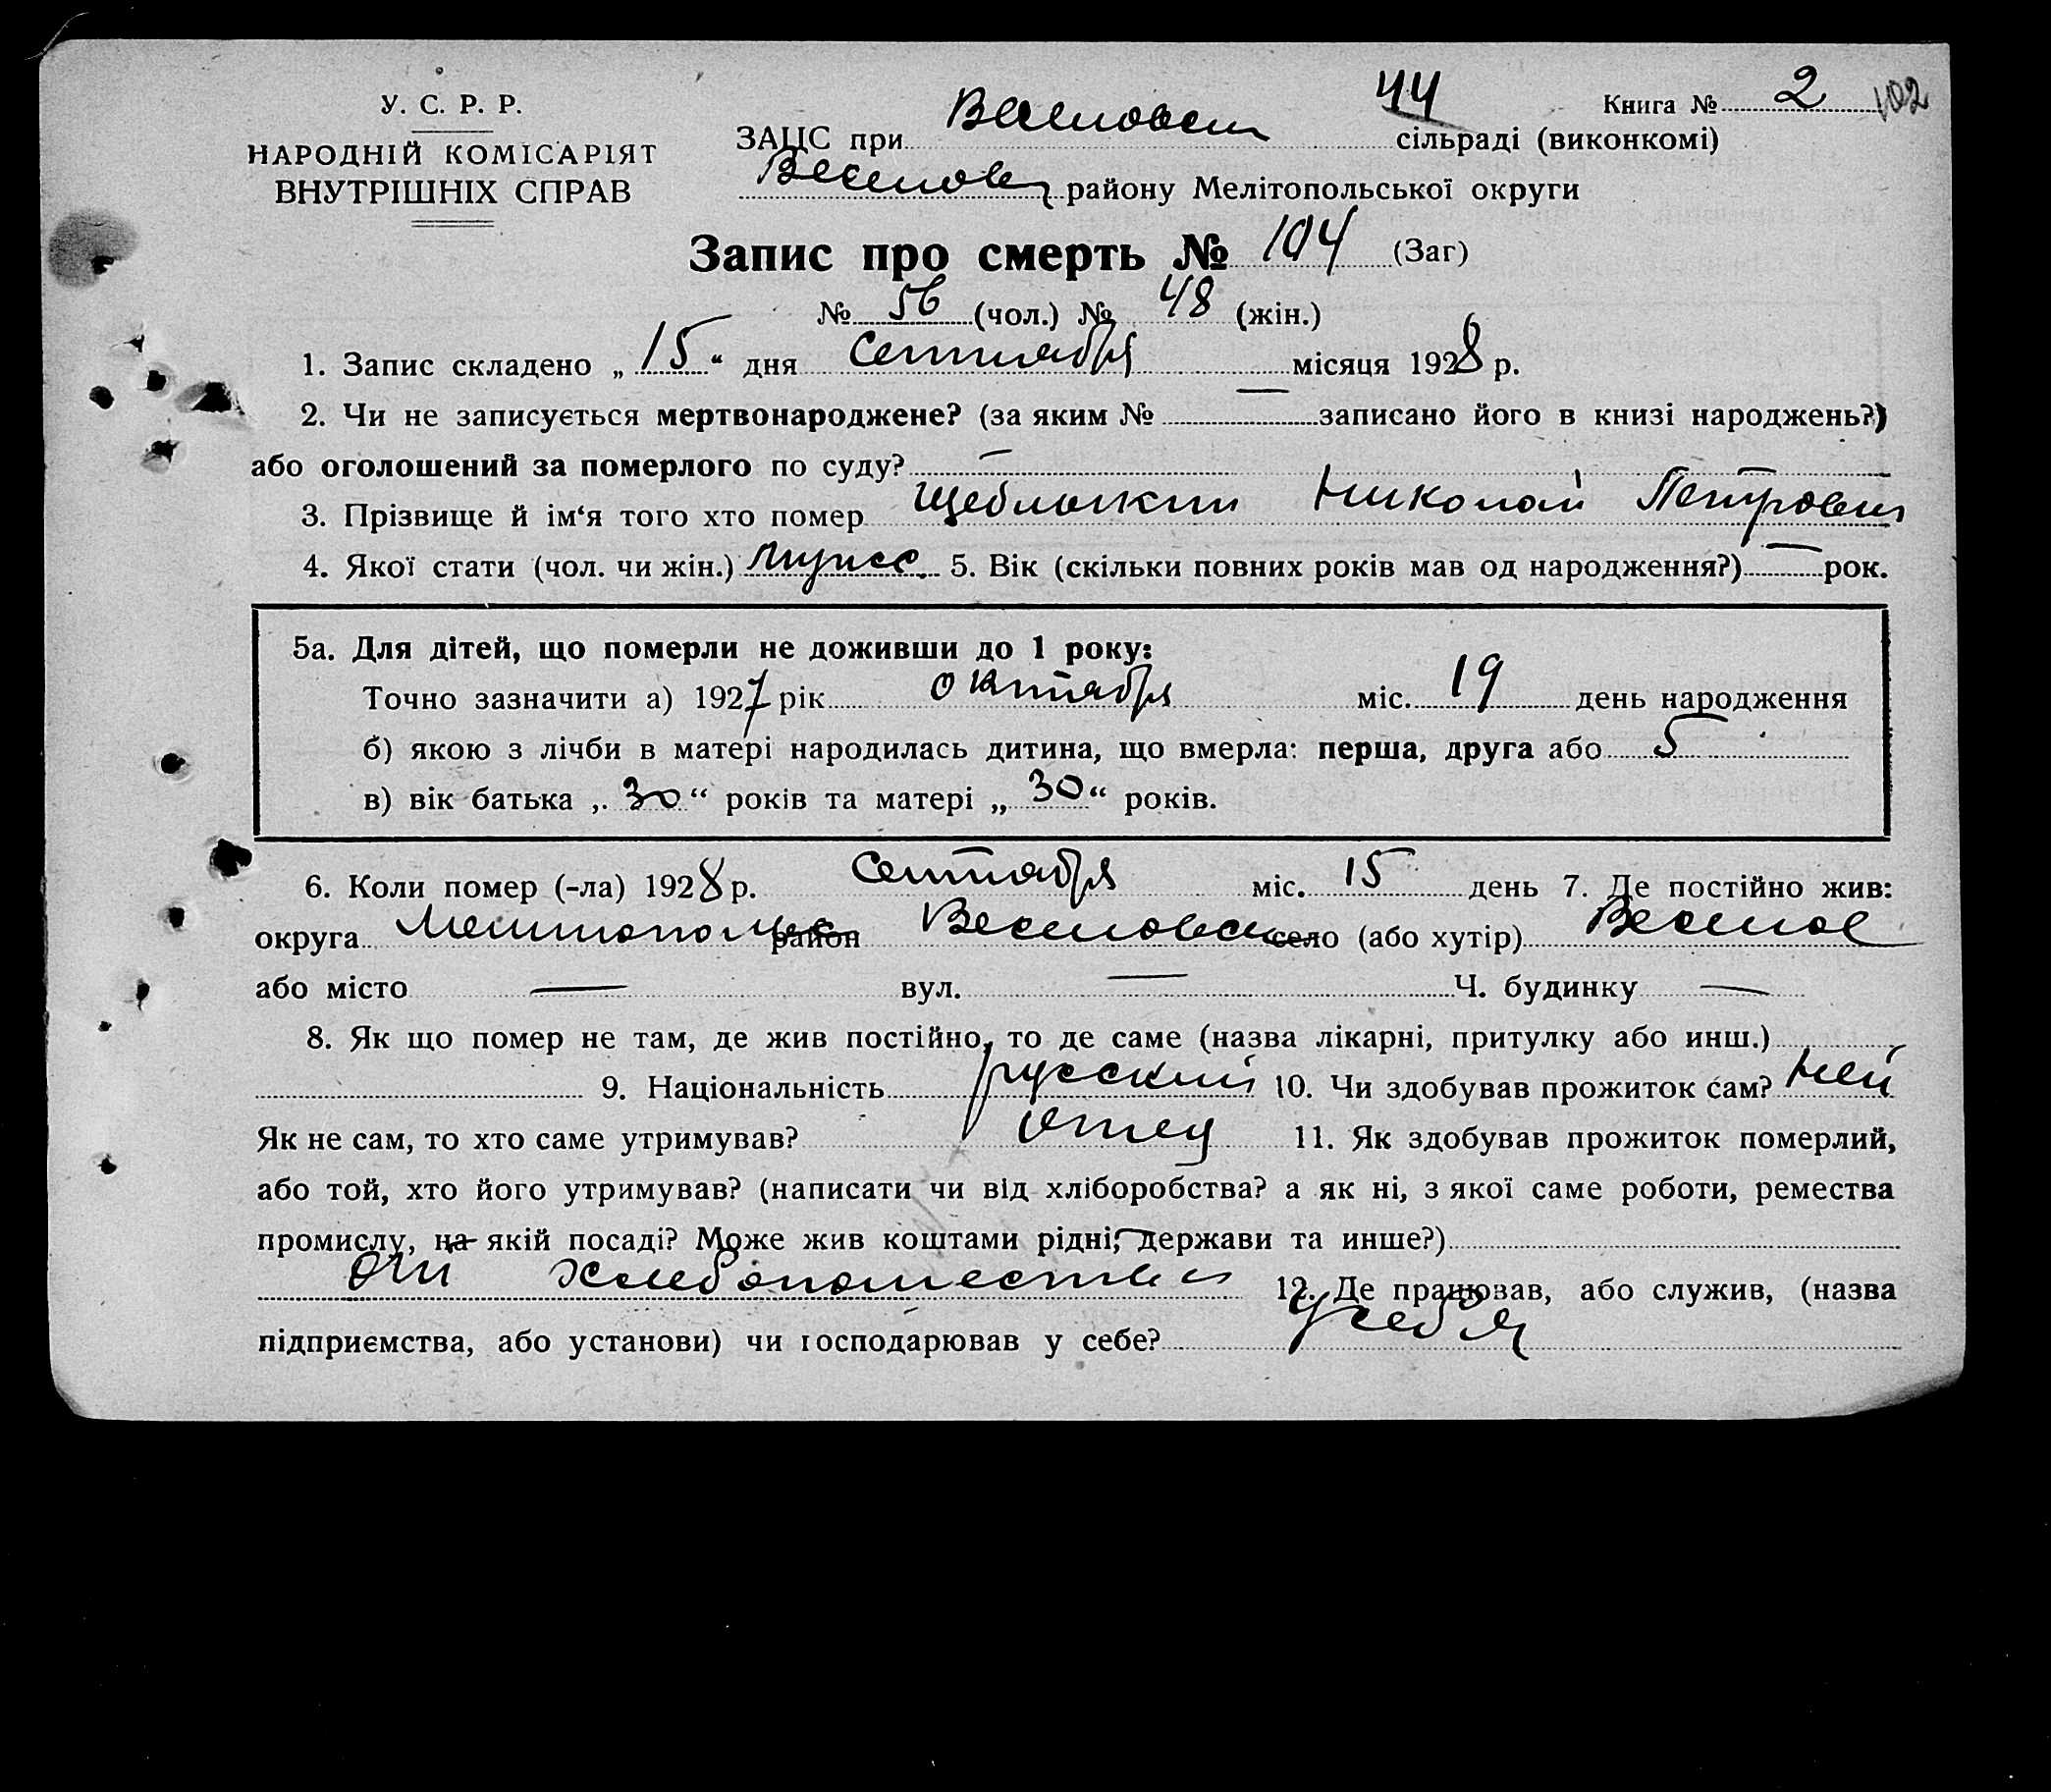 У. С. Р. Р.
НАРОДНІЙ КОМІСАРІЯТ
ВНУТРІШНІХ СПРАВ
44
Книга № 2 102
ЗАЦС при Веселовск сільраді (виконкомі)
Веселовск району Мелітопольської округи
Запис про смерть № 104 (Заг)
№ 56 (чол.) № 48 (жін.)
1. Запис складено „15“ дня Сентября місяця 1928 р.
2. Чи не записується мертвонароджене? (за яким № — записано його в книзі народжень?)
або оголошений за померлого по суду? —
3. Прізвище й ім‘я того хто помер Щеблыкин Николай Петрович
4. Якої стати (чол. чи жін.) мужск. 5. Вік (скільки повних років мав од народження?) — рок.
5а. Для дітей, що померли не доживши до 1 року:
Точно зазначити а) 1927 рік октября міс. 19 день народження
б) якою з лічби в матері народилась дитина, що вмерла: перша, друга або 5
в) вік батька „30“ років та матері „30“ років.
6. Коли помер (-ла) 1928 р. Сентября міс. 15 день 7. Де постійно жив:
округа Мелитопольс район Веселовск село (або хутір) Веселое
або місто — вул. — Ч. будинку —
8. Як що помер не там, де жив постійно, то де саме (назва лікарні, притулку або инш.)
9. Національність русский 10. Чи здобував прожиток сам? Нет
Як не сам, то хто саме утримував? Отец 11. Як здобував прожиток померлий,
або той, хто його утримував? (написати чи від хліборобства? а як ні, з якої саме роботи, ремества
промислу, на якій посаді? Може жив коштами рідні, держави та инше?)
От хлебопашества 12. Де працював, або служив, (назва
підприємства, або установи) чи господарював у себе? У себя